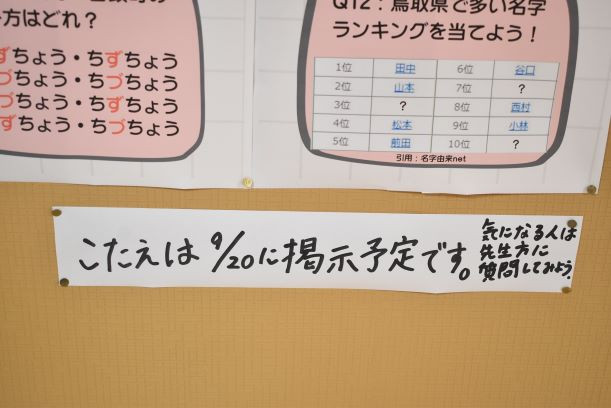 方はどれ？
ずちょう・ちずちょう
づちょう・ちづちょう
づちょう・ちずちょう
ずちょう・ちづちょう
Q12：鳥取県で多い名字
ランキングを当てよう！
1位 田中 6位 谷口
2位 山本 7位 ？
3位 ？ 8位 西村
4位 松本 9位 小林
5位 前田 10位 ？
引用：名字由来net
こたえは9/20に掲示予定です。
気になる人は
先生方に
質問してみよう。